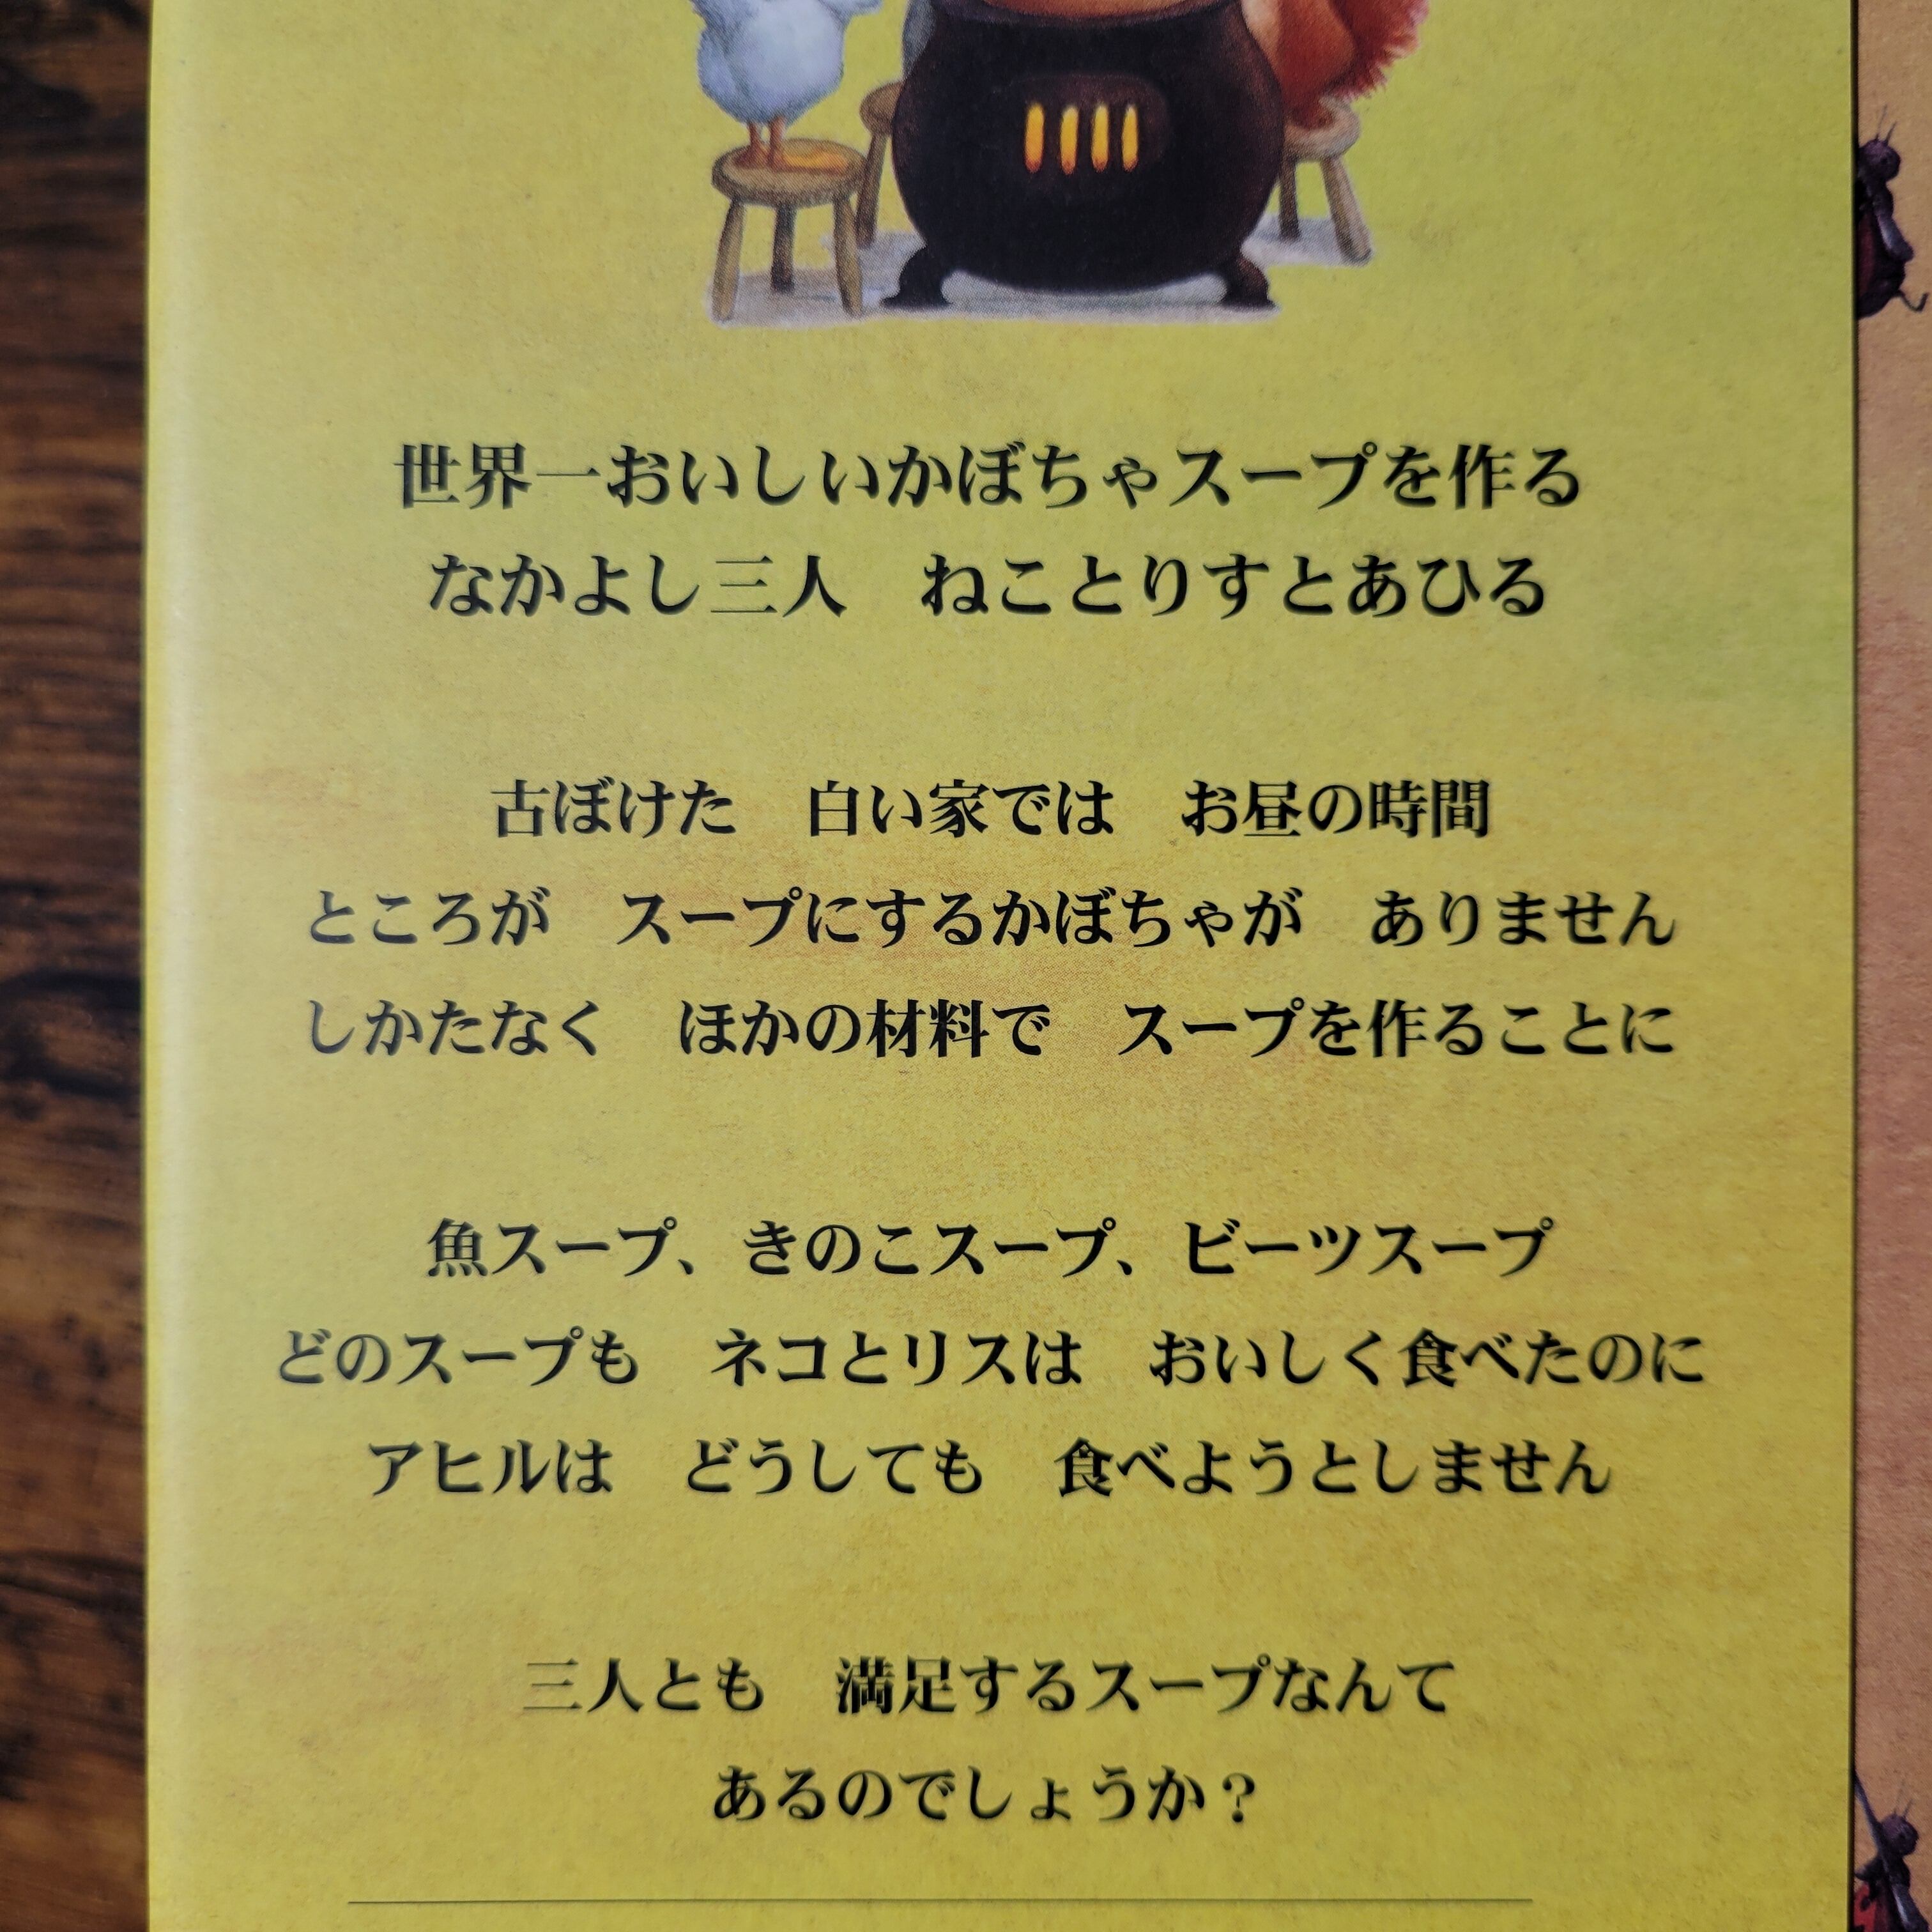 世界一おいしいかぼちゃスープを作る
なかよし三人　ねことりすとあひる
古ぼけた　白い家では　お昼の時間
ところが　スープにするかぼちゃが　ありません
しかたなく　ほかの材料で　スープを作ることに
魚スープ、きのこスープ、ビーツスープ
どのスープも　ネコとリスは　おいしく食べたのに
アヒルは　どうしても　食べようとしません
三人とも　満足するスープなんて
あるのでしょうか？